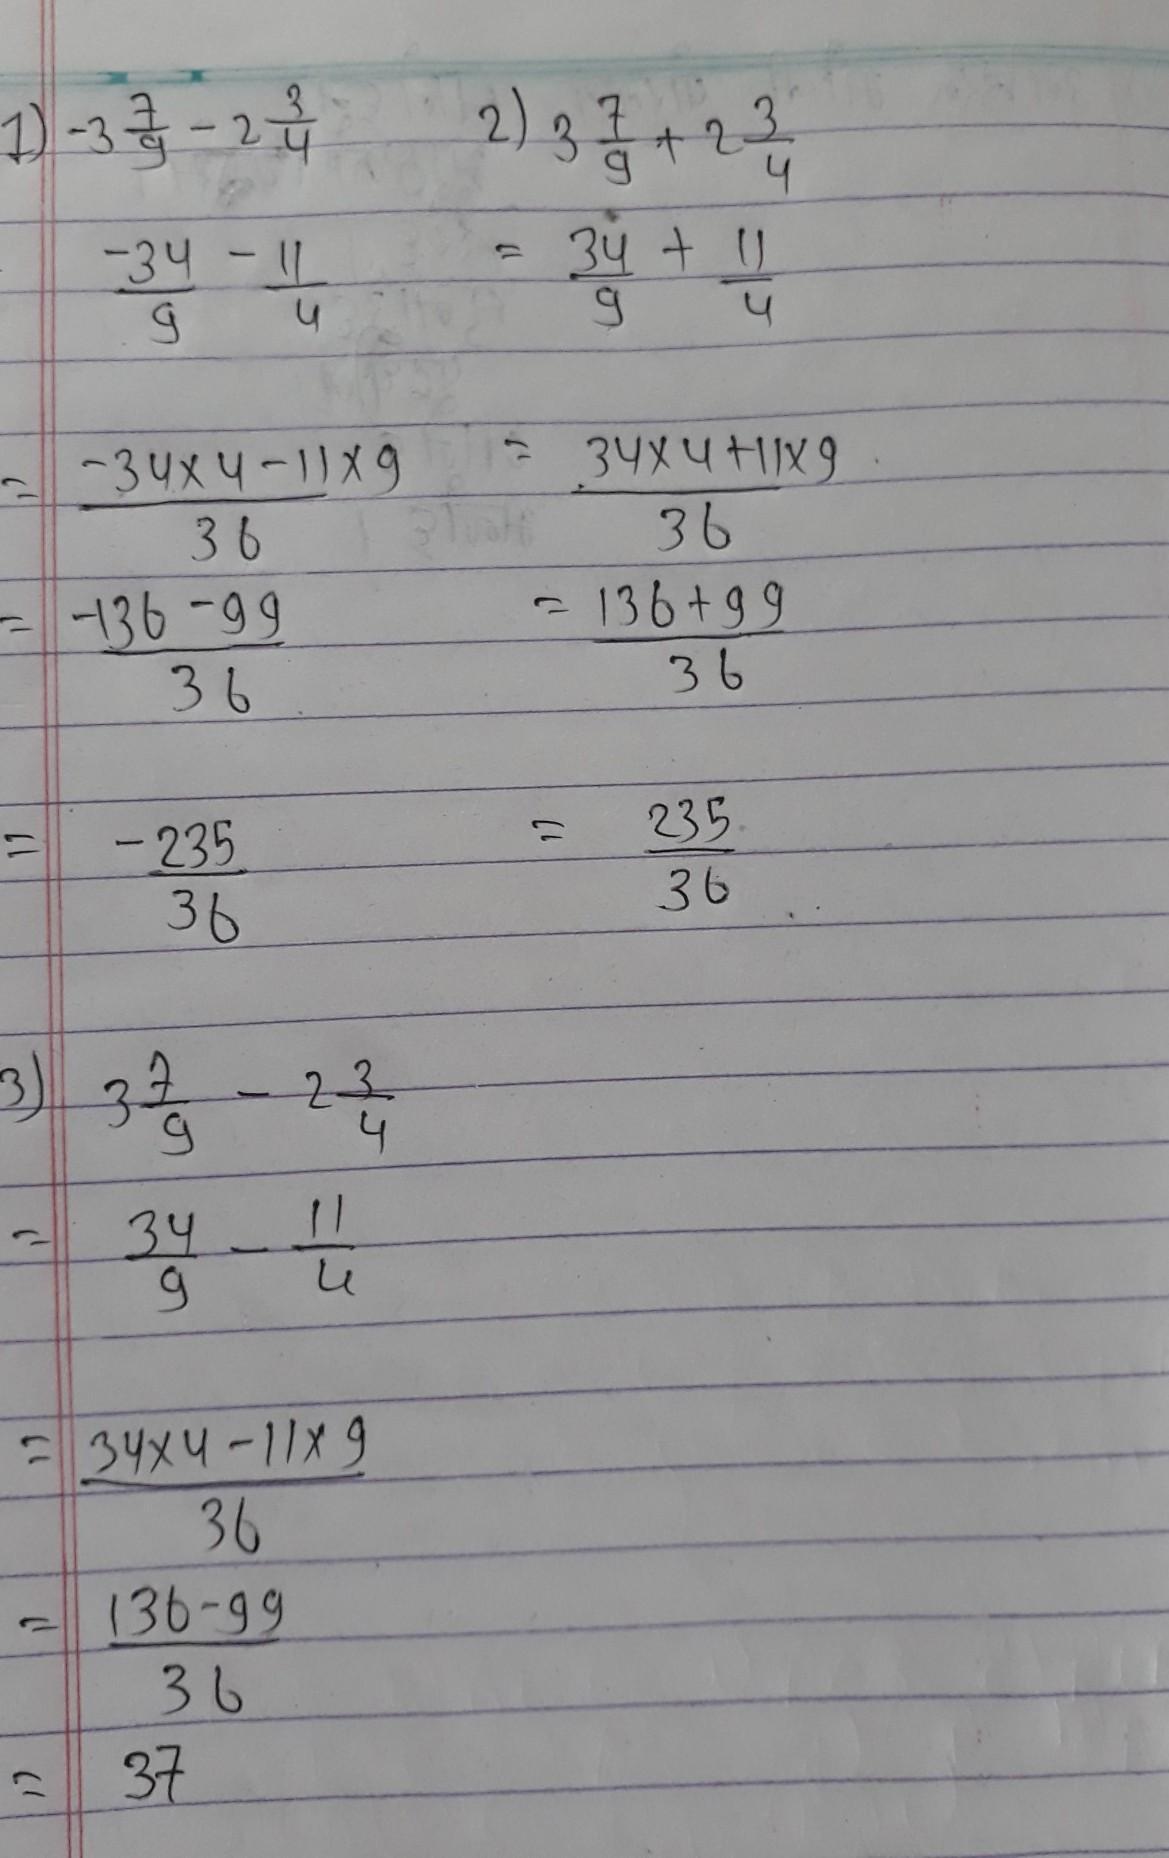 1) -3 7/9 - 2 3/4
-34/9 - 11/4
= -34×4-11×9/36
= -136-99/36
= -235/36
2) 3 7/9 + 2 3/4
= 34/9 + 11/4
= 34×4+11×9/36
= 136+99/36
= 235/36
3) 3 7/9 - 2 3/4
= 34/9 - 11/4
= 34×4-11×9/36
= 136-99/36
= 37